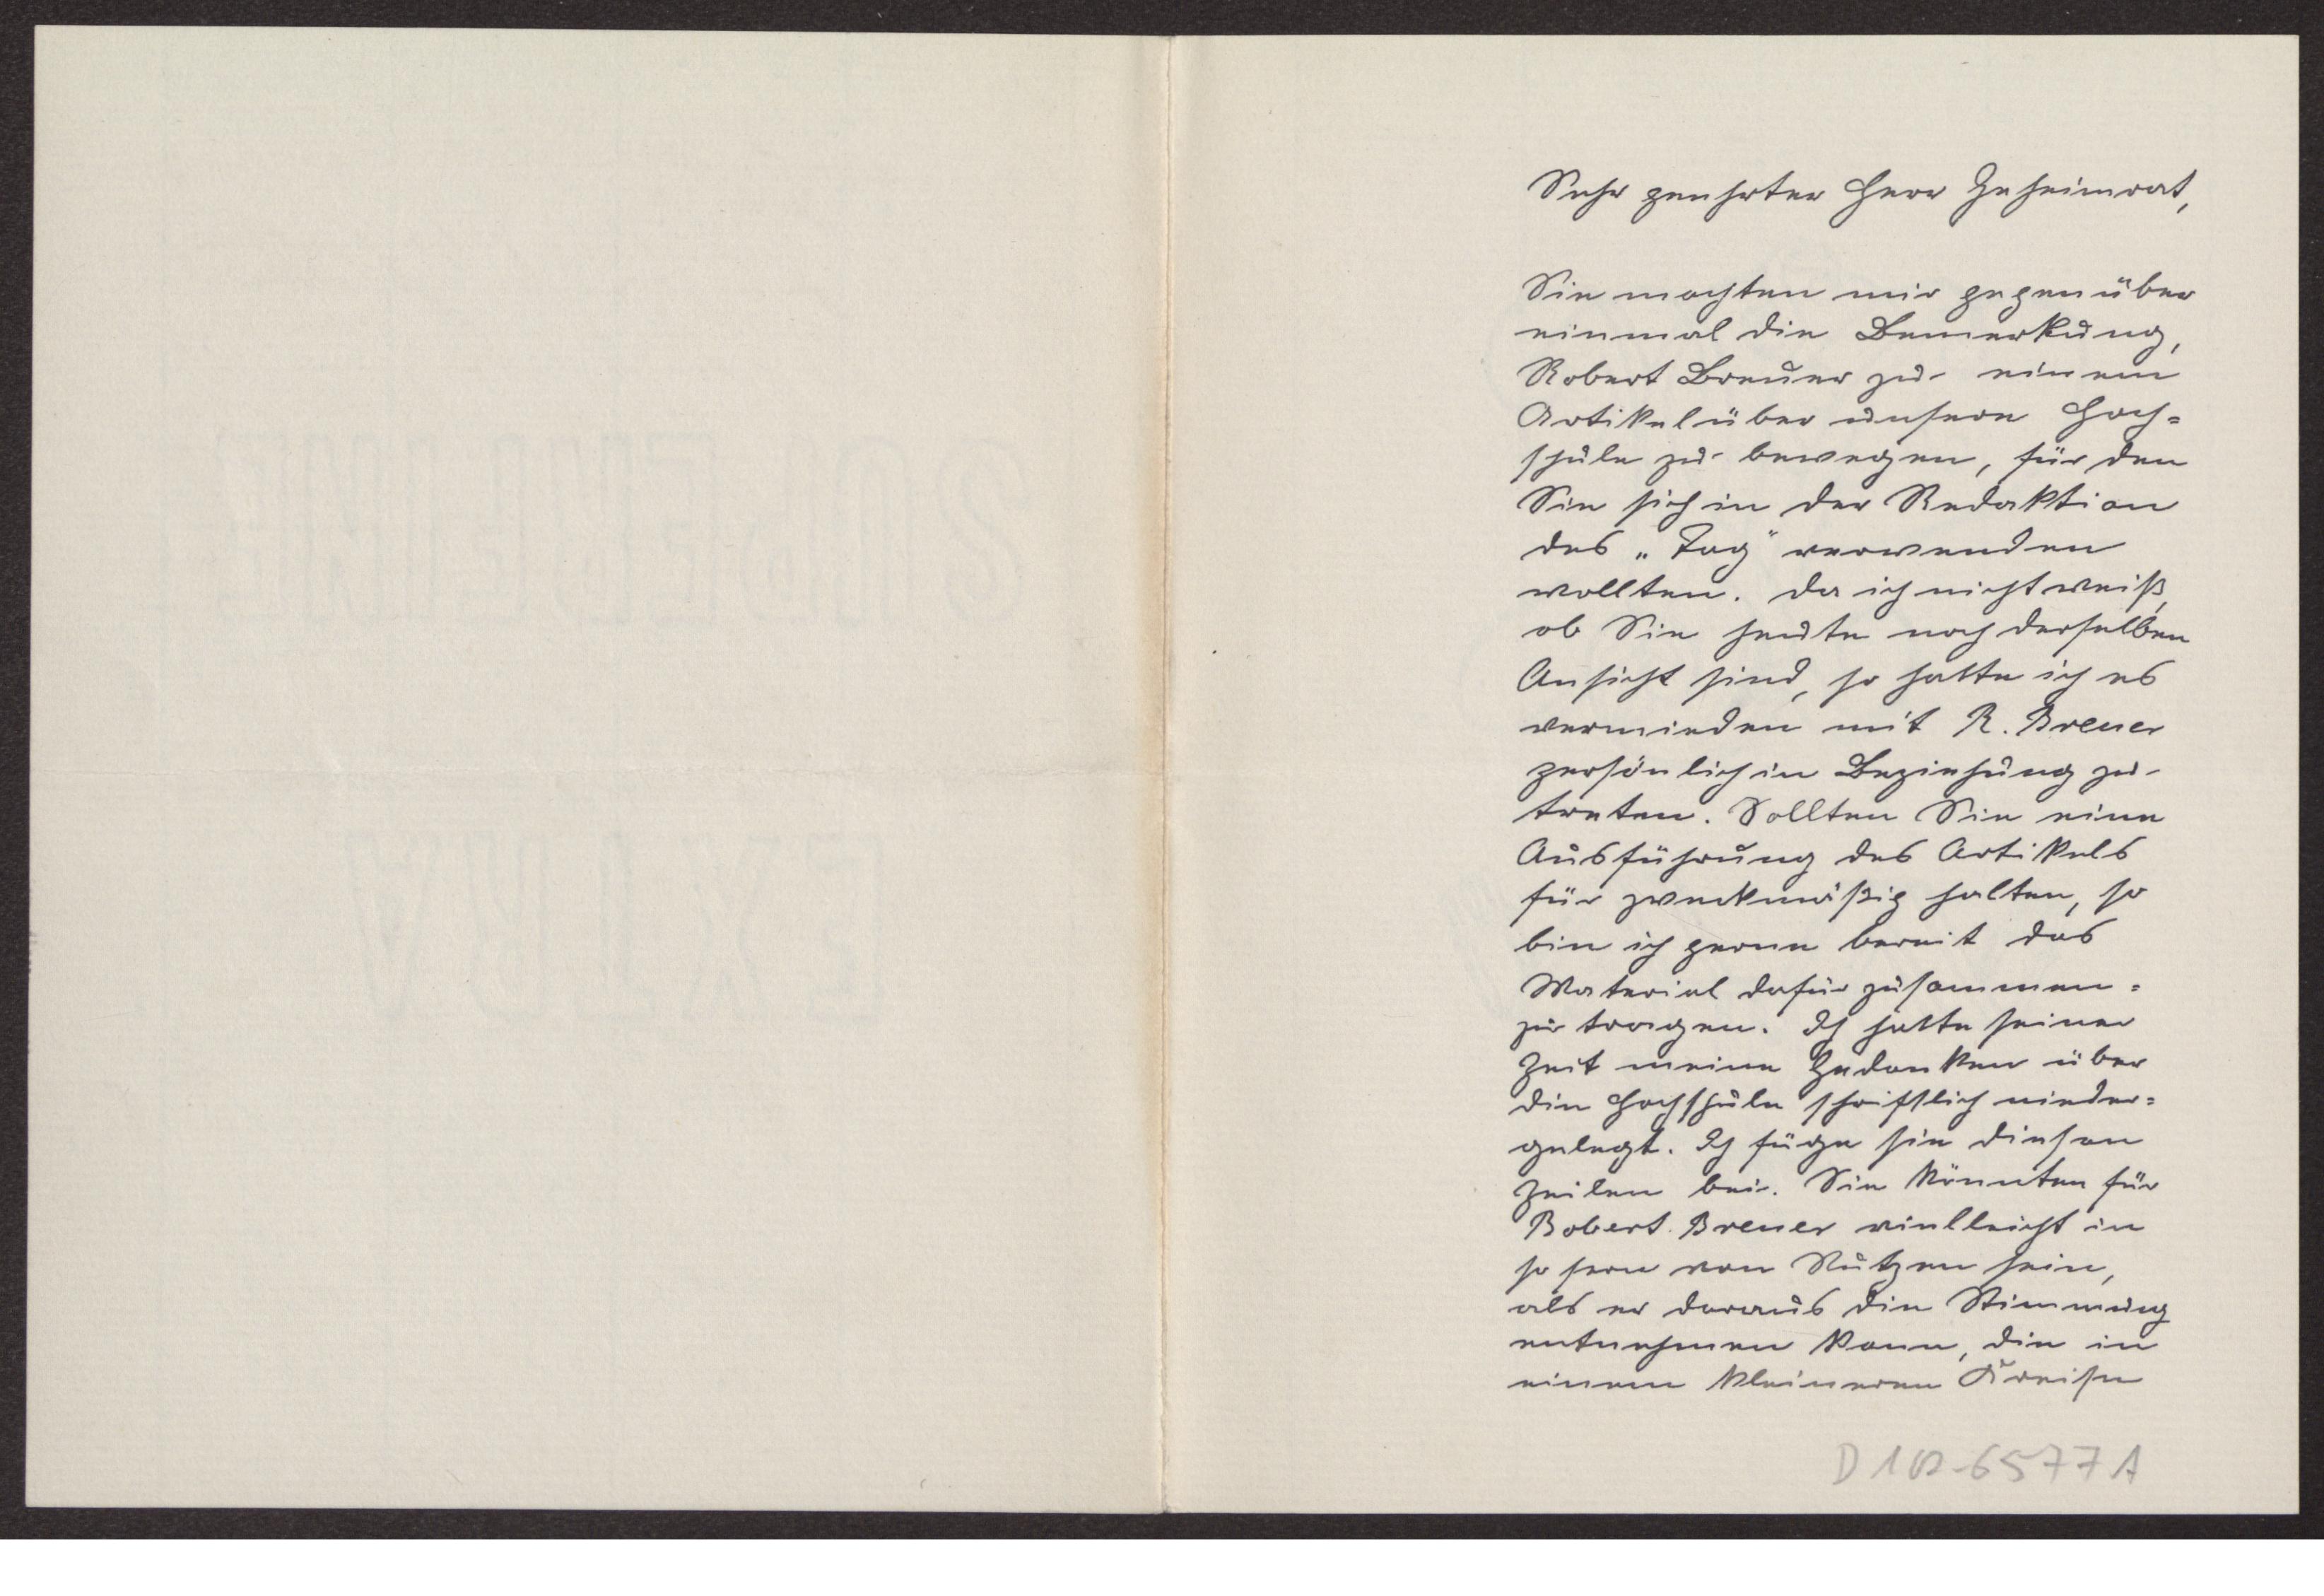 Sehr geehrter Herr Geheimrat,
Sie machten mir gegenüber
einmal die Bemerkung,
Robert Breuer zu einem
Artikel über unsere Hoch=
schule zu bewegen, für den
Sie sich in der Redaktion
des „Tag" verwenden
wollten. Da ich nicht weiß,
ob Sie heute noch derselben
Ansicht sind, so hatte ich es
vermieden mit R. Breuer
persönlich in Beziehung zu
treten. Sollten Sie eine
Ausführung des Artikels
für zweckmäßig halten, so
bin ich gerne bereit das
Material dafür zusammen=
zu tragen. Ich hatte seiner
Zeit meine Gedanken über
die Hochschule schriftlich nieder=
gelegt. Ich füge sie diesen
Zeilen bei. Sie könnten für
Robert Breuer vielleicht in
so fern von Nutzen sein,
als er daraus die Stimmung
entnehmen kann, die in
einem kleineren Kreise
D 102-6577 A